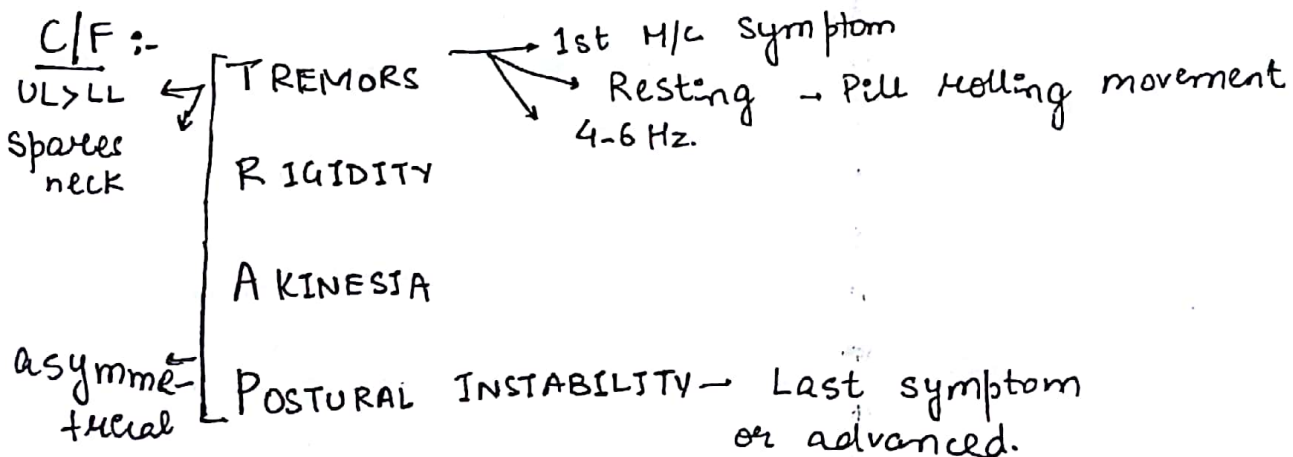 C/F :-
UL>LL
spares
neck
TREMORS → 1st M/C symptom
→ Resting → Pill rolling movement
4-6 Hz.
RIGIDITY
AKINESIA
asymme-
trical
POSTURAL INSTABILITY → Last symptom
or advanced.